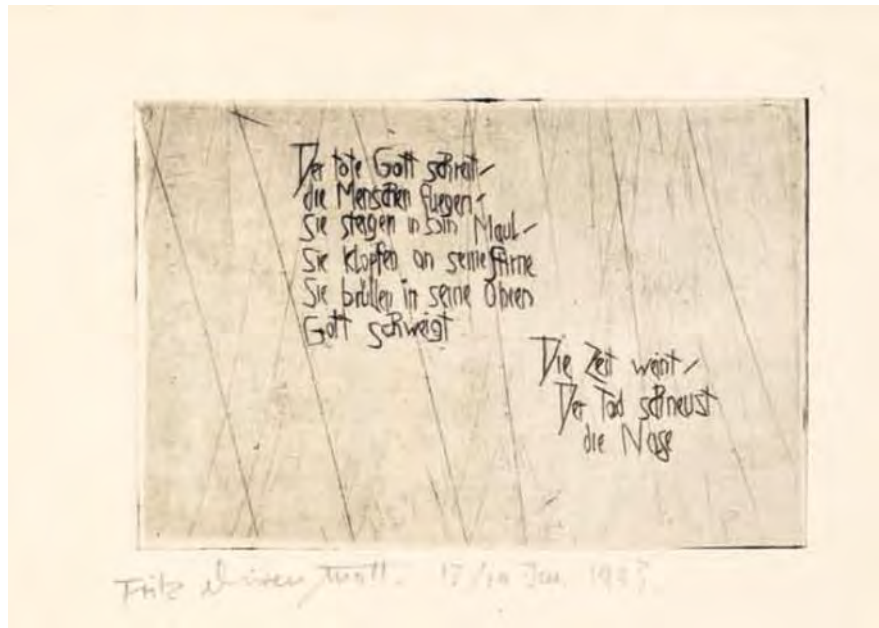 Der tote Gott schreit-
die Menschen fliegen-
Sie steigen in sein Maul-
Sie klopfen an seine Stirne
Sie brüllen in seine Ohren
Gott schweigt
Die Zeit weint-
Der Tod schneust
die Nase
Fritz